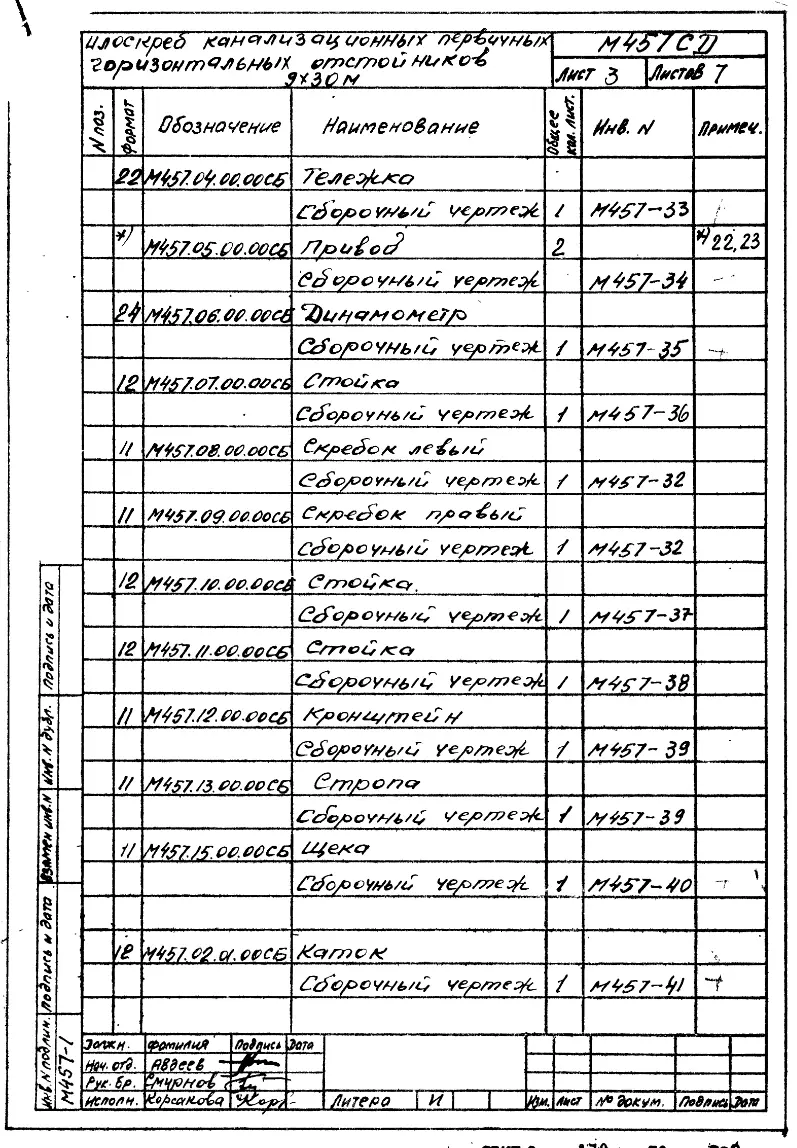 Илоскреб канализационных первичных
горизонтальных отстойников
9х30м
М457СД
Лист 3 Листов 7
N поз. Формат Обозначение Наименование Общее кол. лист. Инв. N Примеч.
22 М457.04.00.00СБ Тележка
Сборочный чертеж 1 М457-33
*) М457.05.00.00СБ Привод 2 *) 22,23
Сборочный чертеж М457-34
24 М457.06.00.00СБ Динамометр
Сборочный чертеж 1 М457-35
12 М457.07.00.00СБ Стойка
Сборочный чертеж 1 М457-36
11 М457.08.00.00СБ Скребок левый
Сборочный чертеж 1 М457-32
11 М457.09.00.00СБ Скребок правый
Сборочный чертеж 1 М457-32
12 М457.10.00.00СБ Стойка.
Сборочный чертеж 1 М457-37
12 М457.11.00.00СБ Стойка
Сборочный чертеж 1 М457-38
11 М457.12.00.00СБ Кронштейн
Сборочный чертеж 1 М457-39
11 М457.13.00.00СБ Стропа
Сборочный чертеж 1 М457-39
11 М457.15.00.00СБ Щека
Сборочный чертеж 1 М457-40
12 М457.02.01.00СБ Каток
Сборочный чертеж 1 М457-41
Подпись и дата
Инв. N дубл.
Взамен инв. N
Подпись и дата
Инв. N подлин.
М457-1
Должн. Фамилия Подпись Дата
Нач. отд. Авдеев
Рук. бр. Смирнов
Исполн. Корсакова
Литера И
Изм. Лист № докум. Подпись Дата